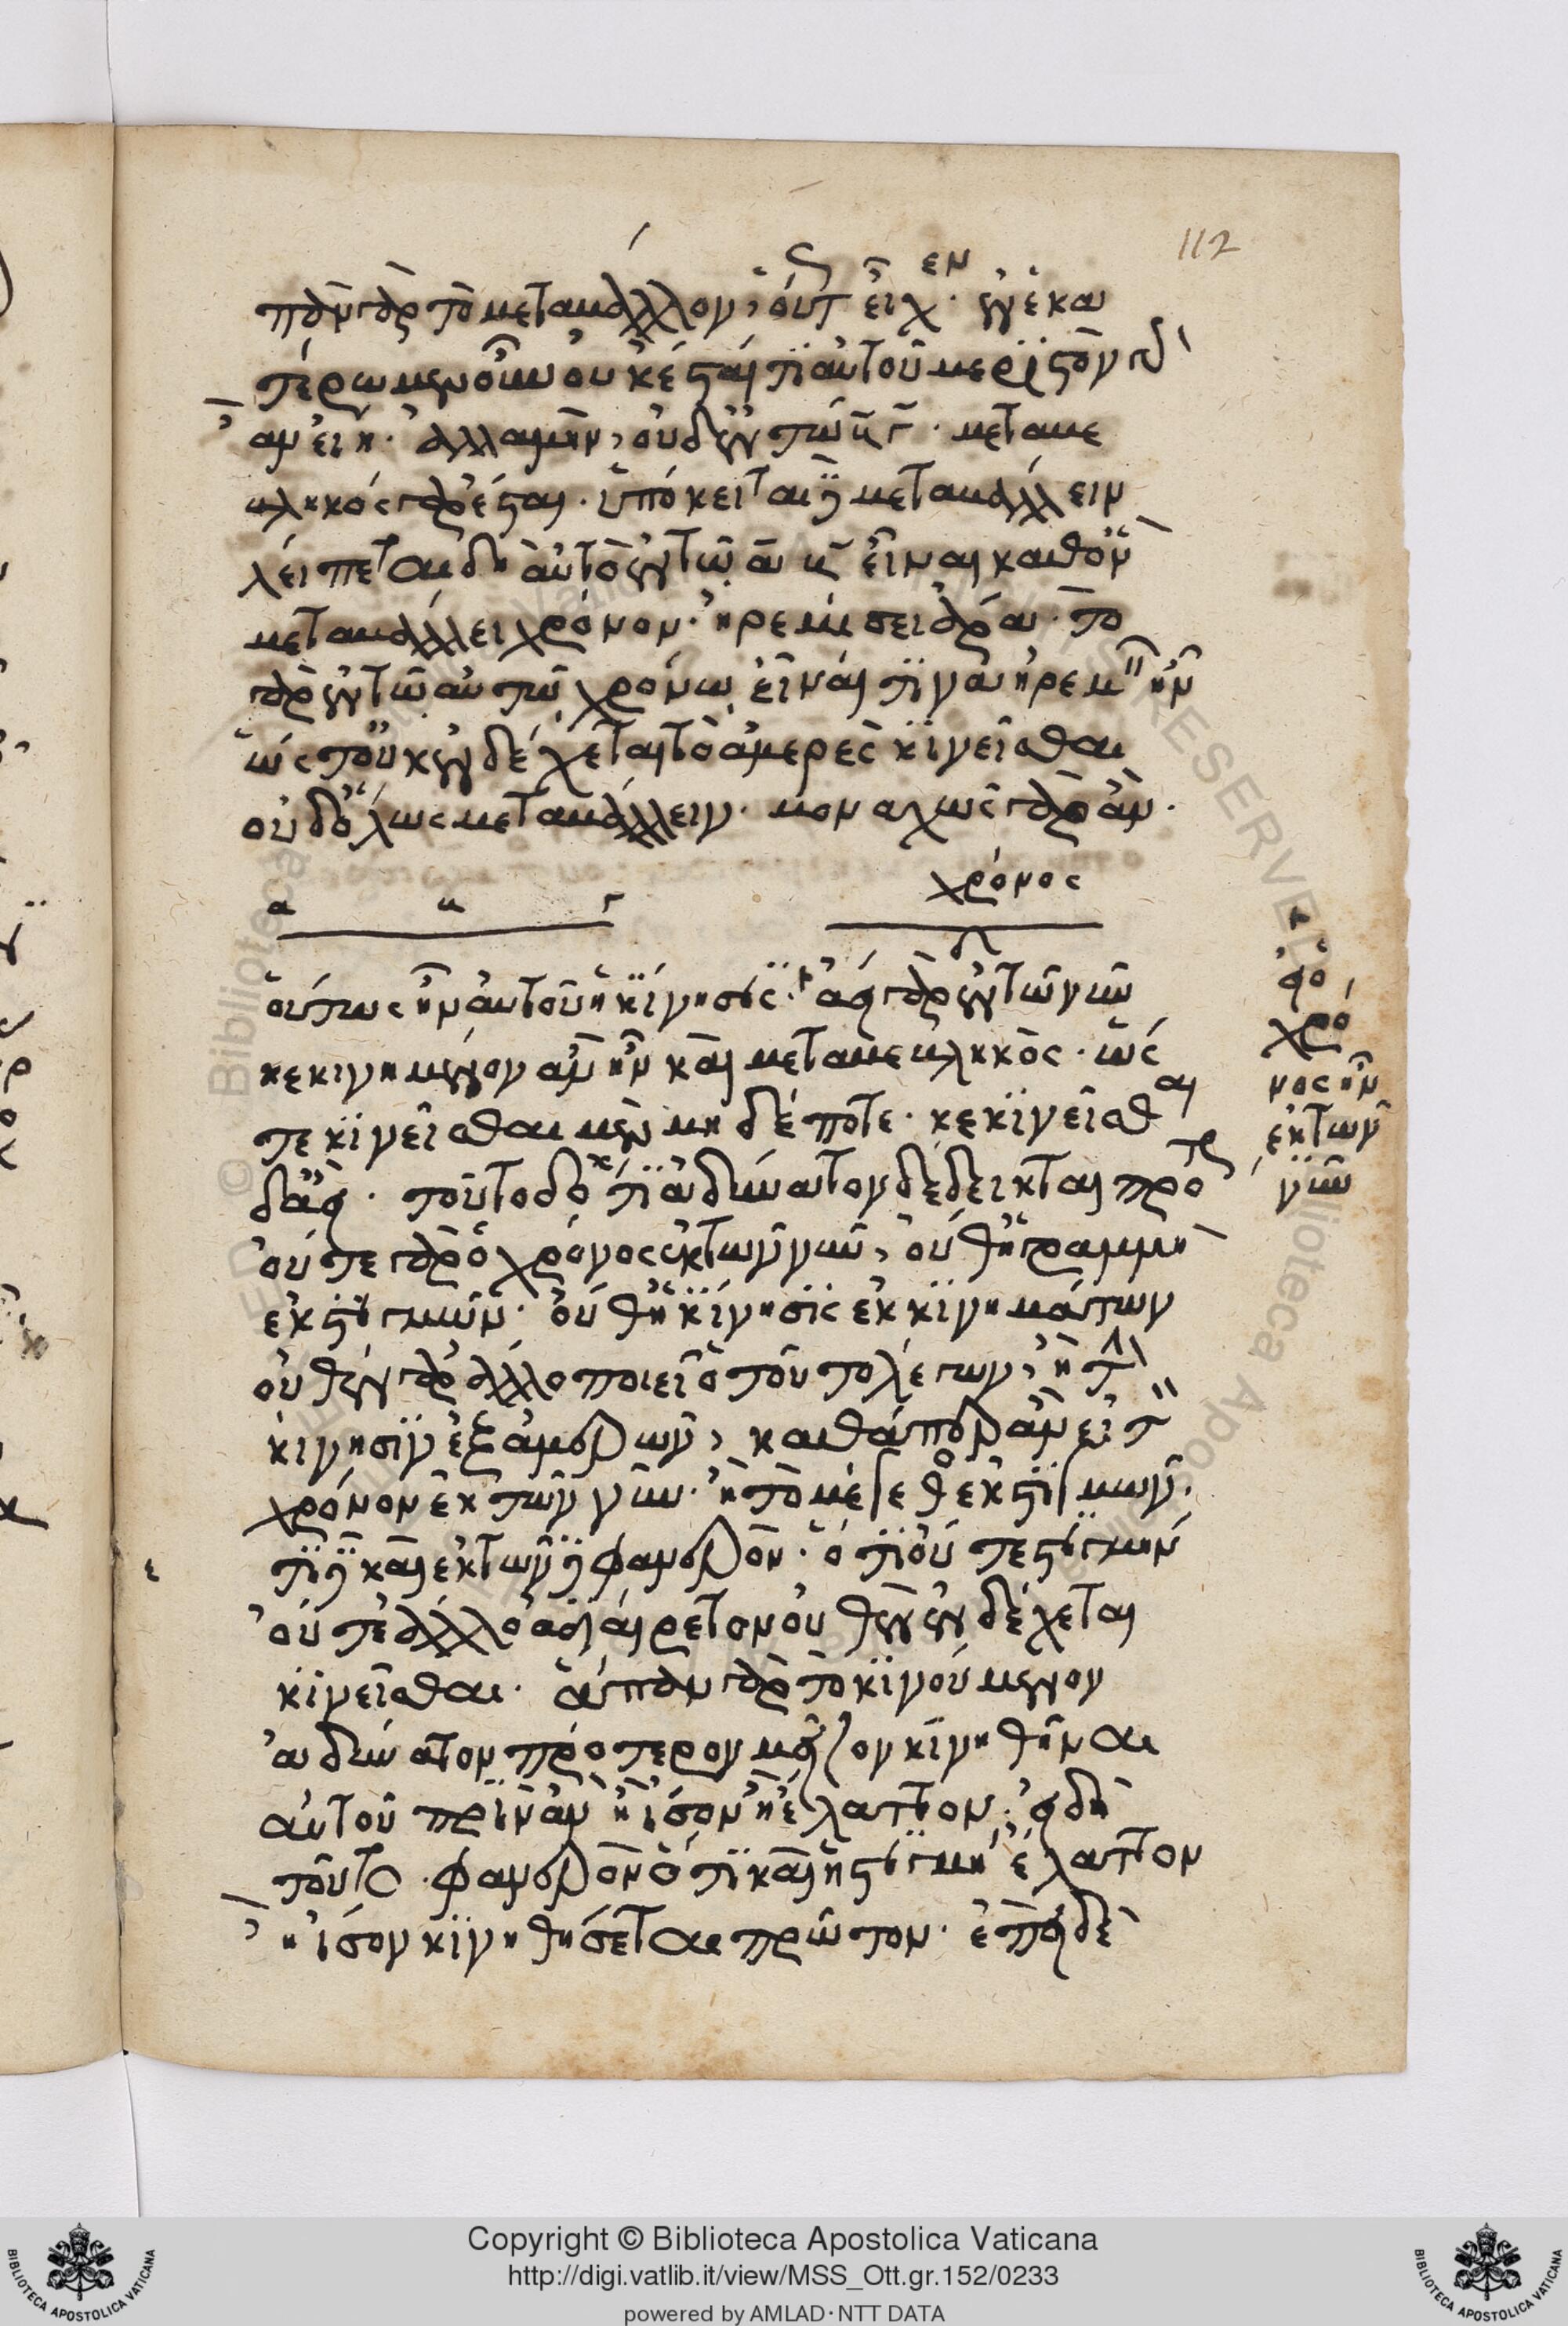 112
πᾶν γὰρ τὸ μεταβάλλον, οὕτως εἶχεν. ἐν ἑκα
τέρω μὲν οὖν οὐκ ἔσται τί αὐτοῦ μεριστὸν γὰρ
ἂν εἴη. ἀλλὰ μὴν, οὐδ' ἐν τῶ β γ. μεταβε
βληκὸς γὰρ ἔσται. ὑπόκειται δὲ μεταβάλλειν
λείπεται δὴ αὐτὸ ἐν τῶ α β εἶναι καθ' ὃν
μεταβάλλει χρόνον. ἠρεμήσει ἄρα. τὸ
γὰρ ἐν τῶ αὐτῶ χρόνω εἶναί τινα ἠρεμεῖν ἦν
ὥστ' οὐκ ἐνδέχεται τὸ ἀμερὲς κινεῖσθαι
οὐδ' ὅλως μεταβάλλειν. μοναχῶς γὰρ ἂν.
χρόνος
α β γ
οὕτως ἦν αὐτοῦ ἡ κίνησις. ἀεὶ γὰρ ἐν τῶ νῦν
κεκινημένον ἂν ἦν καὶ μεταβεβληκὸς. ὥς
τε κινεῖσθαι μὲν μηδέποτε. κεκινεῖσθαι
δ' ἀεί. τοῦτο δ' ὅτι ἀδύνατον δέδεικται πρότερ
οὔτε γὰρ ὁ χρόνος ἐκ τῶν νῦν, οὔθ' ἡ γραμμὴ
ἐκ στιγμῶν. οὔθ' ἡ κίνησις ἐκ κινημάτων
οὐθὲν γὰρ ἄλλο ποιεῖ ὁ τοῦτο λέγων, ἢ τὴν
κίνησιν ἐξ ἀμερῶν, καθάπερ ἂν εἰ τὸν
χρόνον ἐκ τῶν νῦν. ἢ τὸ μέγεθος ἐκ στιγμῶν.
ἔτι δὲ καὶ ἐκ τῶνδε φανερὸν. ὅτι οὔτε στιγμὴν
οὔτ' ἄλλο ἀδιαίρετον οὐθὲν ἐνδέχεται
κινεῖσθαι. ἅπαν γὰρ τὸ κινούμενον
ἀδύνατον πρότερον μεῖζον κινηθῆναι
αὐτοῦ πρὶν ἂν ἢ ἴσον ἢ ἔλαττον. εἰ δὴ
τοῦτο. φανερὸν ὅτι καὶ ἡ στιγμὴ ἔλαττον
ἢ ἴσον κινηθήσεται πρῶτον. ἐπεὶ δὲ
εἰ ὁ
χρό
νος ἦν
ἐκ τῶν
νῦν
Copyright © Biblioteca Apostolica Vaticana
http://digi.vatlib.it/view/MSS_Ott.gr.152/0233
powered by AMLAD · NTT DATA